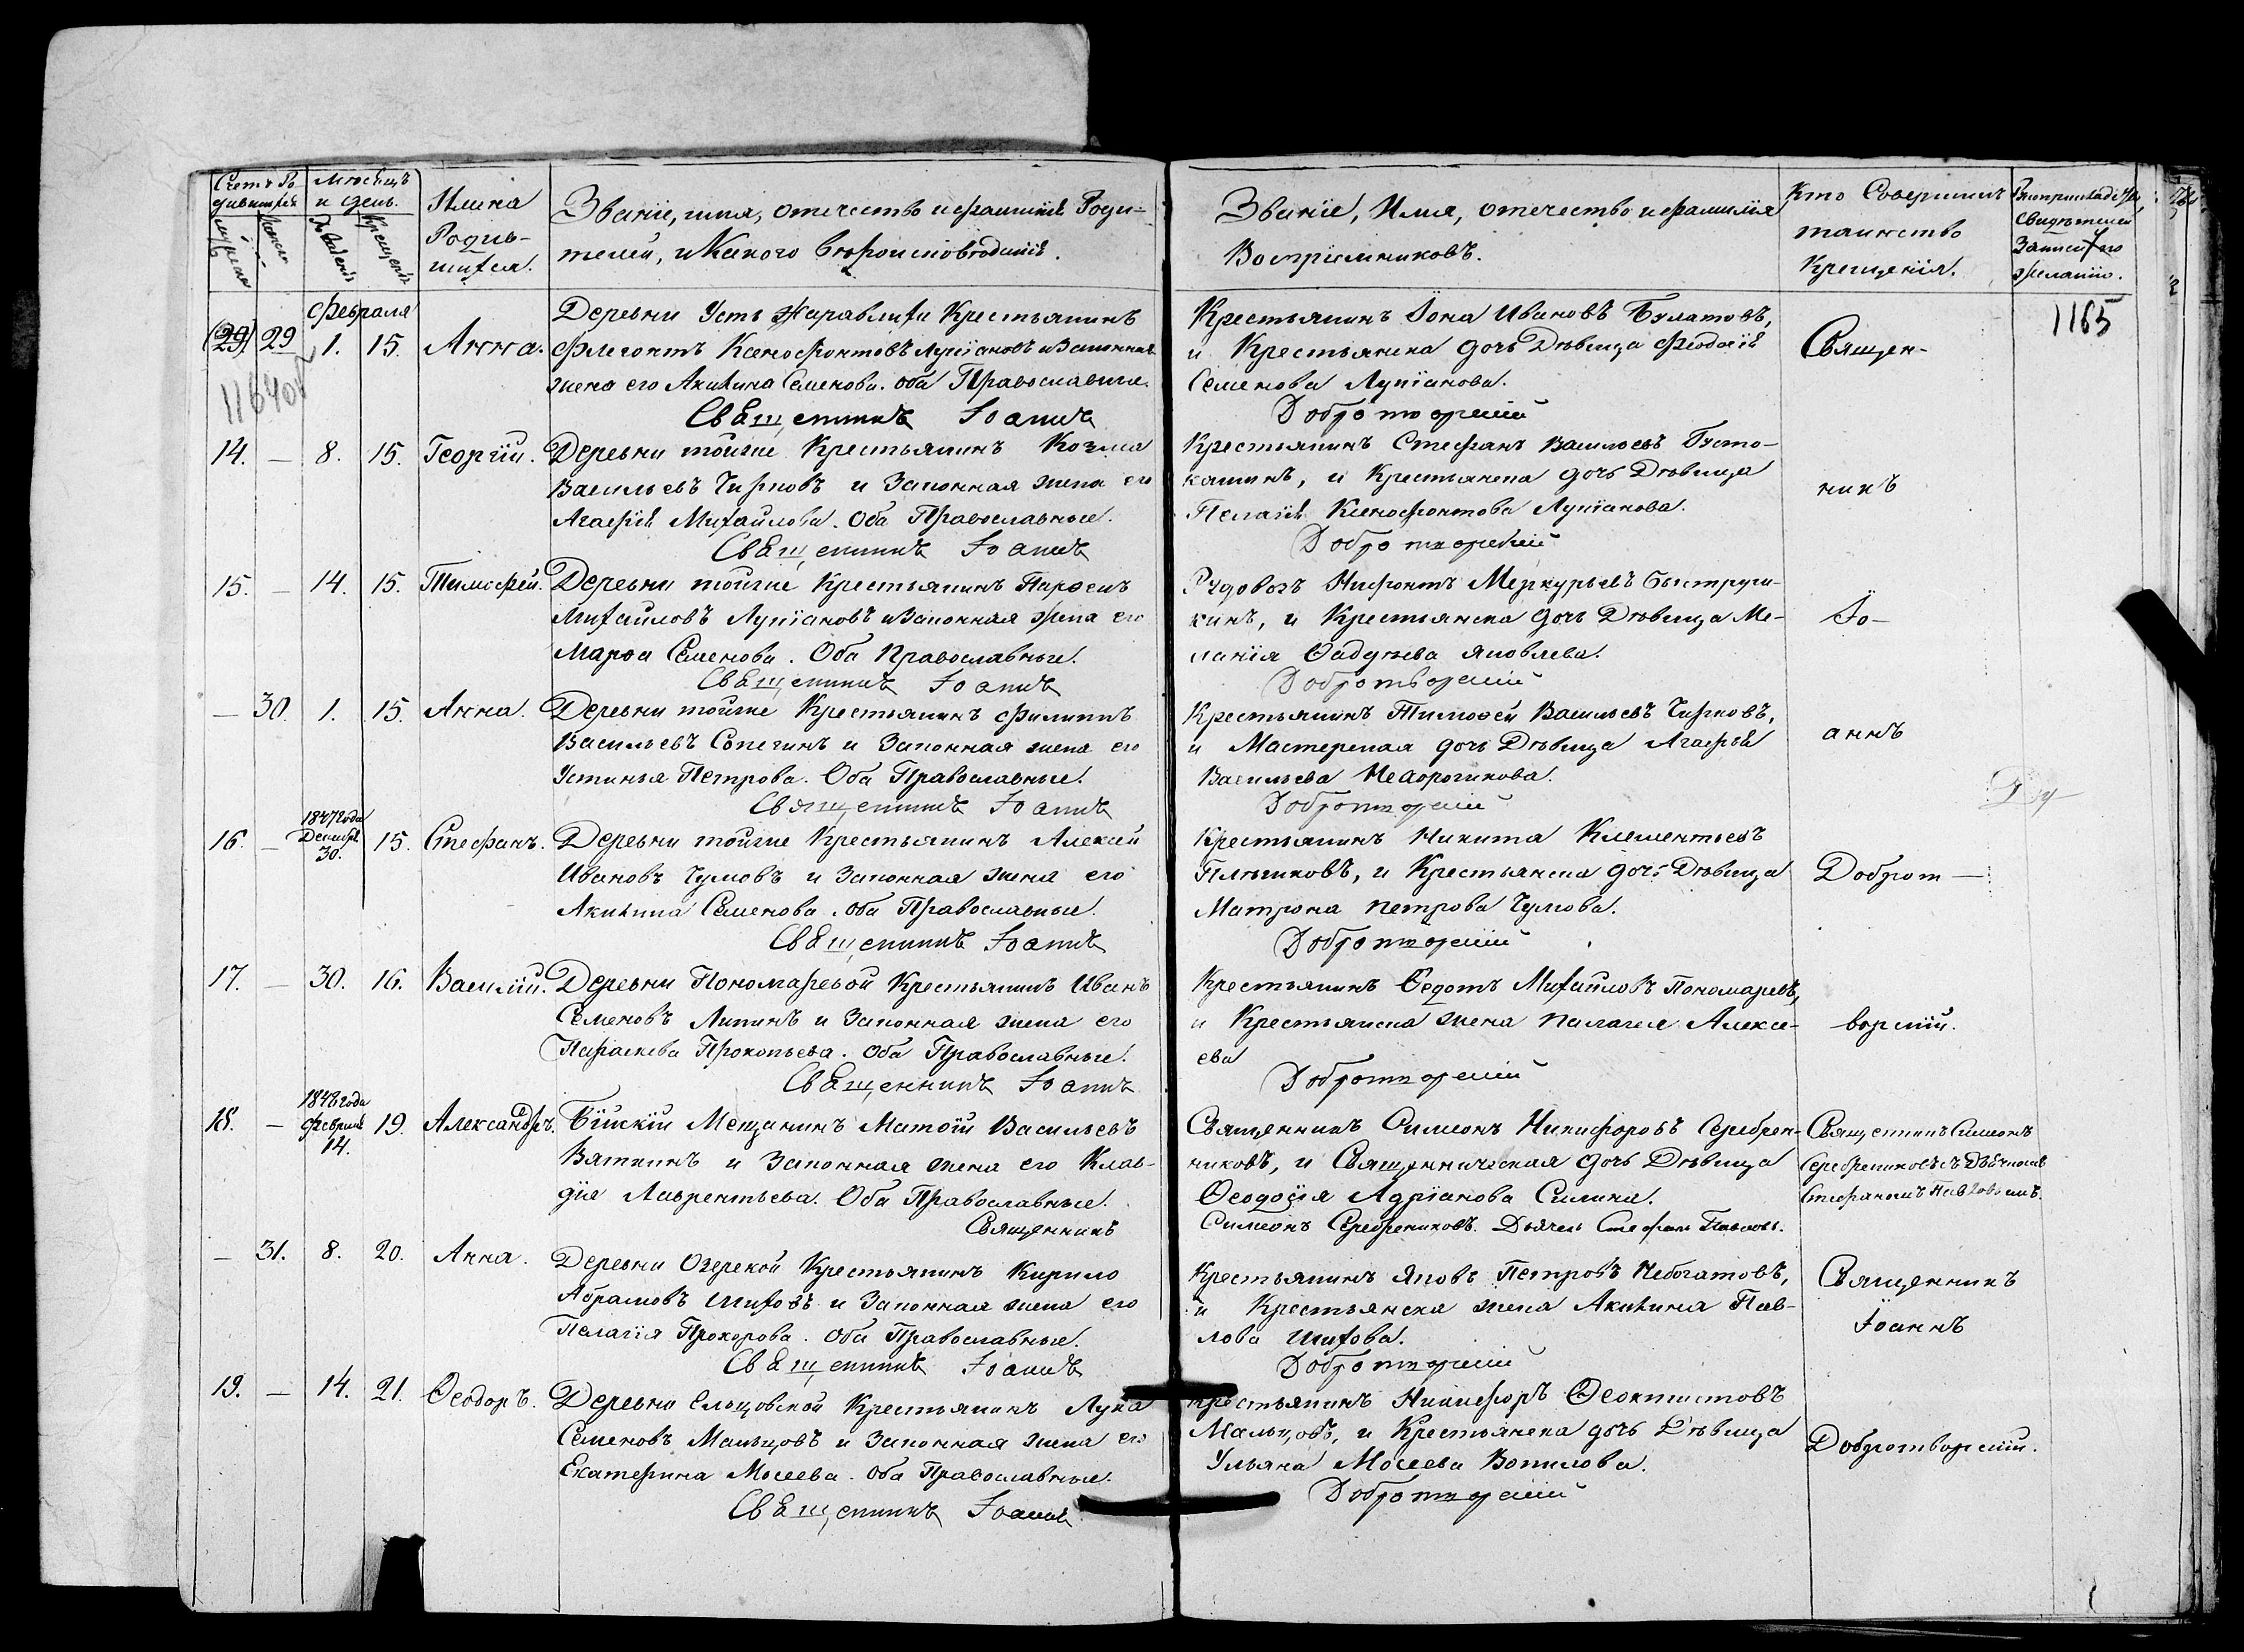 Счетъ Ро
дившихся
Мѣсяцъ
и день.
Рожденія
Крещенія
Имена
Родив-
шихся.
Званіе, имя, отечество и фамилія Роди-
телей, и какого вѣроисповѣданія.
Званіе, Имя, отечество и фамилія
Воспріемниковъ.
Кто Совершилъ
таинство
Крещенія.
Свидѣтелей
записи по
желанію.
1165
Февраля
(29) 29 1. 15. Анна.
Деревни Усть Журавлихи Крестьянинъ
Флегонтъ Ксенофонтовъ Лупановъ и Законная
жена его Акилина Семенова. Оба Православные.
Священникъ Іоаннъ
Крестьянинъ Іона Ивановъ Булатовъ,
и Крестьянска дочь Дѣвица Феодосія
Семенова Лупанова.
Добротворскій
Священ-
14. — 8. 15. Георгій.
Деревни тойже Крестьянинъ Козма
Васильевъ Чирковъ и Законная жена его
Агафія Михайлова. Оба Православные.
Священникъ Іоаннъ
Крестьянинъ Стефанъ Васильевъ Густо-
кашинъ, и Крестьянска дочь Дѣвица
Пелагія Ксенофонтова Лупанова.
Добротворскій
никъ
15. — 14. 15. Тимофей.
Деревни тойже Крестьянинъ Парѳенъ
Михайловъ Лупановъ и Законная жена его
Марѳа Семенова. Оба Православные.
Священникъ Іоаннъ
Рудовозъ Нифонтъ Меркурьевъ Быструш-
кинъ, и Крестьянска дочь Дѣвица Ме-
ланія Ѳадѣева Яковлева.
Добротворскій
Іо-
— 30. 1. 15. Анна.
Деревни тойже Крестьянинъ Филиппъ
Васильевъ Сопегинъ и Законная жена его
Устинья Петрова. Оба Православные.
Священникъ Іоаннъ
Крестьянинъ Тимоѳей Васильевъ Чирковъ,
и Мастерская дочь Дѣвица Агафья
Васильева
Добротворскій
аннъ
1847 года
Декабря
16. — 30. 15. Стефанъ.
Деревни тойже Крестьянинъ Алексѣй
Ивановъ Чумовъ и Законная жена его
Акилина Семенова. Оба Православные.
Священникъ Іоаннъ
Крестьянинъ Никита Клементьевъ
Плѣшковъ, и Крестьянска дочь Дѣвица
Матрона Петрова Чумова.
Добротворскій
Доброт—
17. — 30. 16. Василій.
Деревни Пономаревой Крестьянинъ Иванъ
Семеновъ Липинъ и Законная жена его
Параскева Прокопьева. Оба Православные.
Священникъ Іоаннъ
Крестьянинъ Ѳедотъ Михайловъ Пономаревъ,
и Крестьянска жена Палагея Алексе-
ева
Добротворскій
ворскій.
1848 года
Февраля
18. — 14. 19. Александръ.
Бійскій Мещанинъ Матѳій Васильевъ
Вяткинъ и Законная жена его Клав-
дія Лаврентьева. Оба Православные.
Священникъ
Священникъ Симеонъ Никифоровъ Серебрен-
никовъ, и Священническая дочь Дѣвица
Ѳеодосія Адріанова Силина.
Симеонъ Серебрениковъ. Дьячекъ Стефанъ Павловъ.
Священникъ Симеонъ
Серебрениковъ съ Дьячкомъ
Стефаномъ Павловымъ.
— 31. 8. 20. Анна.
Деревни Озерской Крестьянинъ Кирило
Абрамовъ Шиховъ и Законная жена его
Пелагія Прохорова. Оба Православные.
Священникъ Іоаннъ
Крестьянинъ Яковъ Петровъ Небогатовъ,
и Крестьянска жена Акилина Пав-
лова Шихова.
Добротворскій
Священникъ
Іоаннъ
19. — 14. 21. Ѳеодоръ.
Деревни Ельцовской Крестьянинъ Лука
Семеновъ Мальцовъ и Законная жена его
Екатерина Мосеева. Оба Православные.
Священникъ Іоаннъ
Крестьянинъ Никифоръ Ѳеоктистовъ
Мальцовъ, и Крестьянска дочь Дѣвица
Ульяна Мосеева Вопилова.
Добротворскій
Добротворскій.